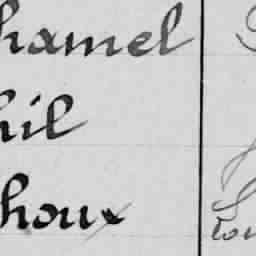 hamel
hil
houx